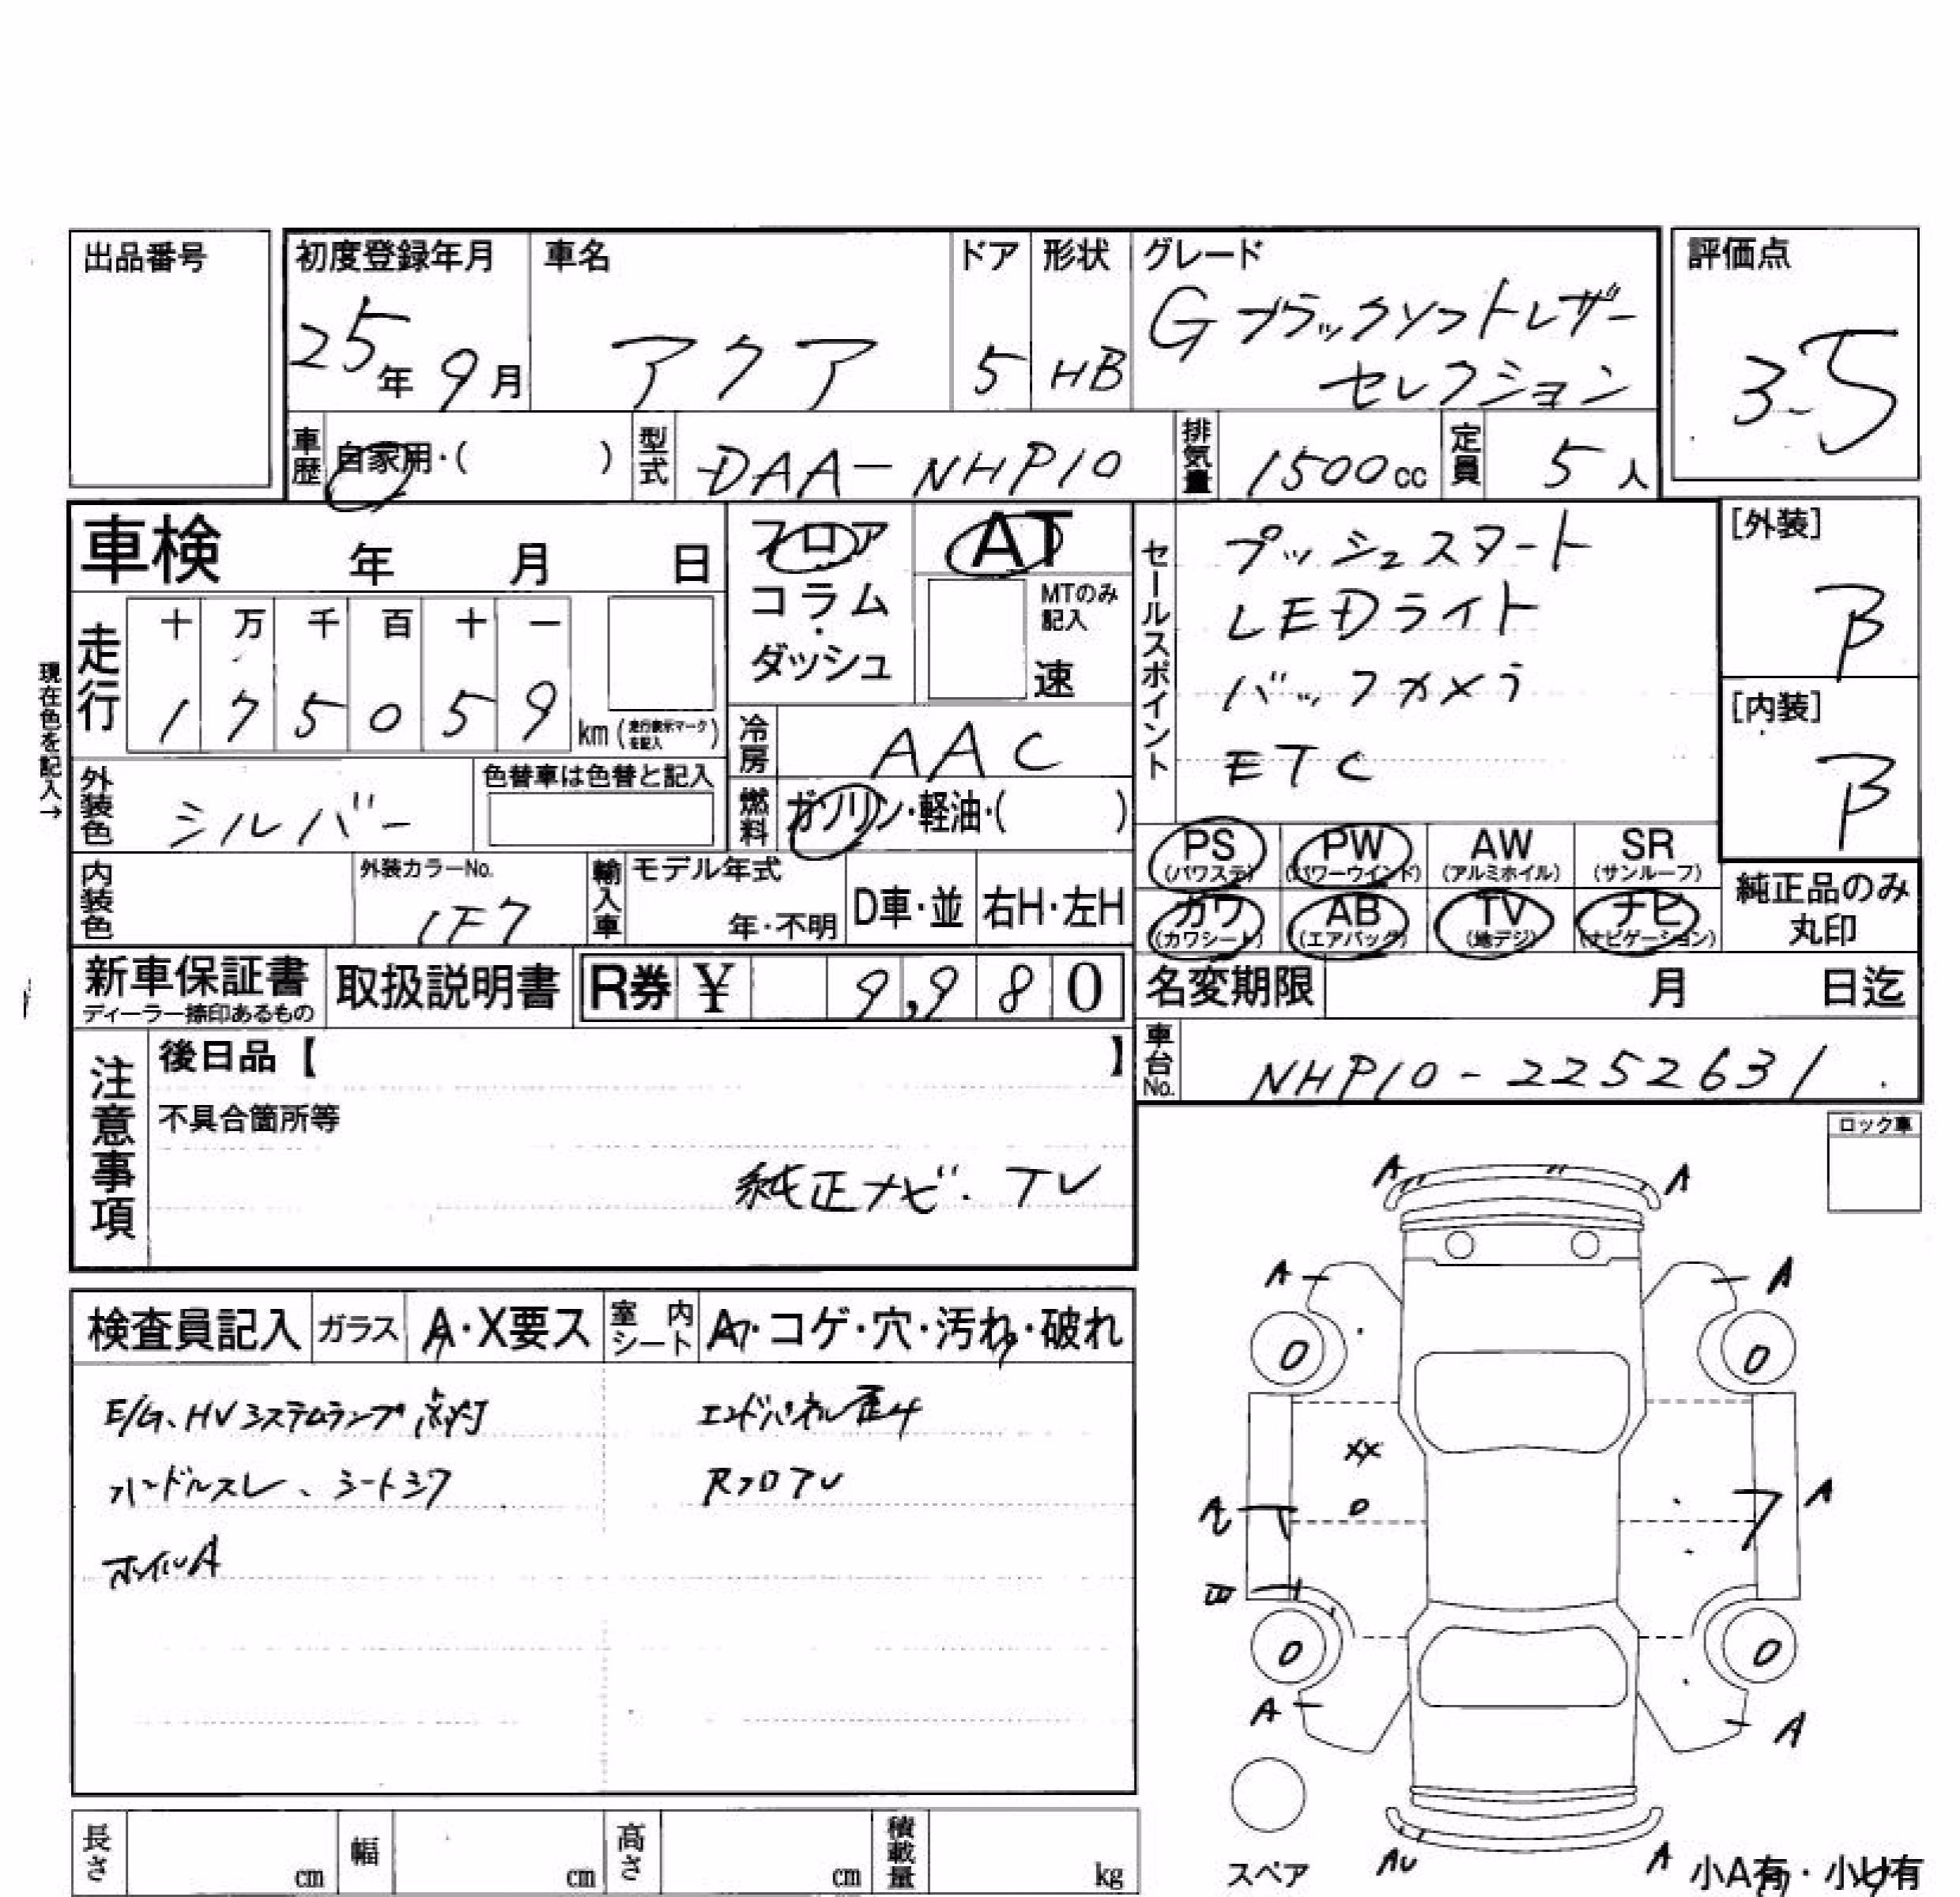 出品番号
初度登録年月 車名 ドア 形状 グレード 評価点
25年9月 アクア 5 HB Gブラックソフトレザー
セレクション
3.5
車歴 自家用・( ) 型式 DAA-NHP10 排気量 1500cc 定員 5人
車検 年 月 日
フロア
コラム
・
ダッシュ
AT
MTのみ
記入
速
セールスポイント
プッシュスタート
LEDライト
バックカメラ
ETC
[外装]
B
[内装]
B
現在色を記入→
走行 十 万 千 百 十 一
1 7 5 0 5 9 km (走行表示マークを記入)
冷房 AAC
外装色 シルバー 色替車は色替と記入
燃料 ガソリン・軽油・( )
PS (パワステ) PW (パワーウインド) AW (アルミホイル) SR (サンルーフ)
カワ (カワシート) AB (エアバッグ) TV (地デジ) ナビ (ナビゲーション)
純正品のみ
丸印
内装色 外装カラーNo. 1F7 輸入車 モデル年式 年・不明 D車・並 右H・左H
新車保証書
ディーラー捺印あるもの
取扱説明書 R券 ¥ 9,980
名変期限 月 日迄
車台No. NHP10-2252631
注意事項
後日品【 】
不具合箇所等
純正ナビ・TV
ロック車
検査員記入 ガラス A・X要ス 室内シート A・コゲ・穴・汚れ・破れ
E/G、HVシステムランプ点灯 エンドパネル歪み
ハンドルスレ、シートシワ RフロアU
ホイルA
A A
A A
0 0
XX
0
A
A
0 0
A A
AU A
スペア
小A有・小U有
長さ cm 幅 cm 高さ cm 積載量 kg